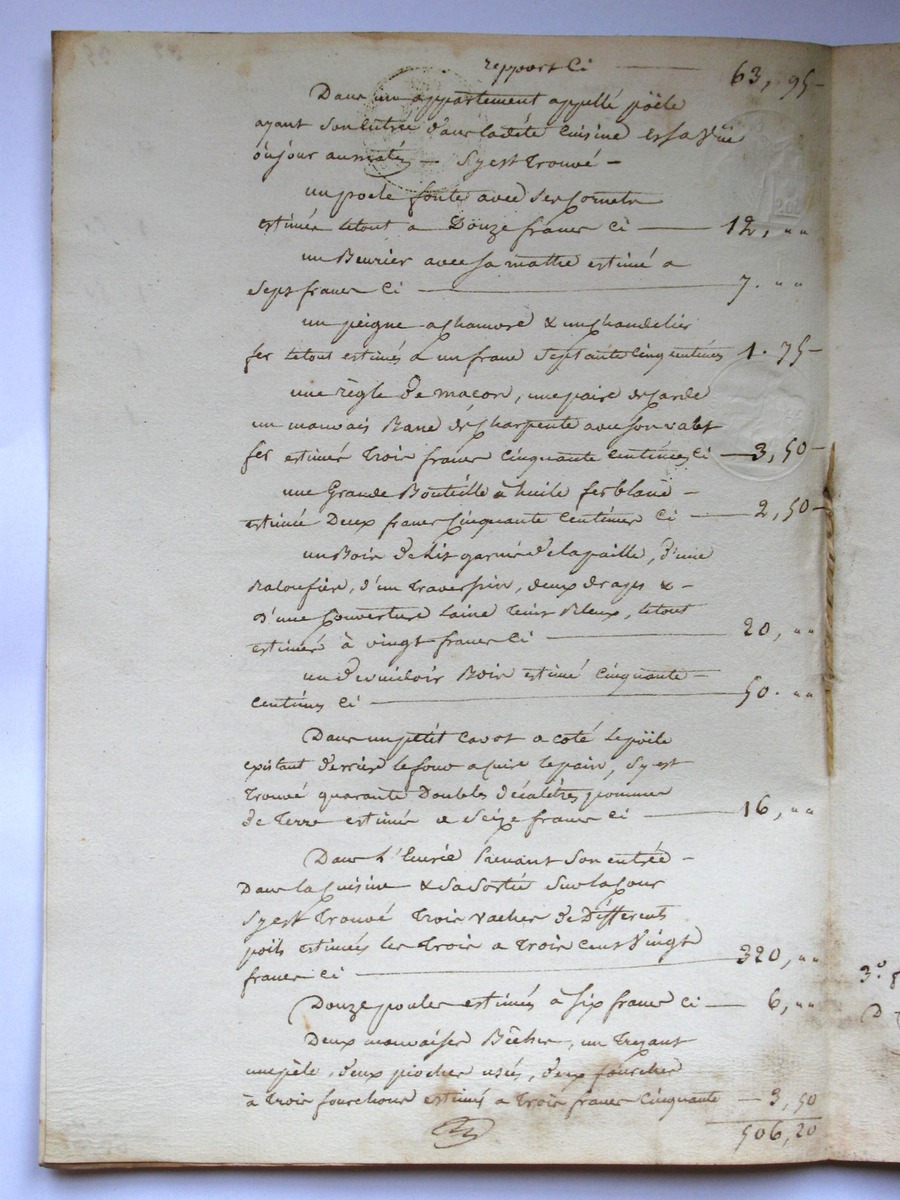 report Ci 63, 95
Dans un appartement appellé poële
ayant son entrée dans la dite Cuisine et sa vüe
ou jour au matin Sy est Trouvé
un poele fonte avec ses Cornets
estimés le tout a Douze francs Ci 12, "
un Beurier avec sa mattre estimé a
Sept francs Ci 7. "
un peigne a Chanvre & un Chandelier
fer le tout estimés a un franc Septante Cinq centimes 1. 75
une règle de macon, une paire de Carde
un mauvais Banc de Charpente avec son valet
fer estimés Trois francs Cinquante Centimes Ci 3, 50
une Grande Bouteille à huile ferblanc
estimée Deux francs Cinquante Centimes Ci 2, 50
un Bois de Lit garni de la paille, d'une
Baloufière, d'un Traversin, deux draps &
d'une Couverture laine Teint Bleux, le tout
estimés à vingt francs Ci 20, "
un devuidoir Bois estimé Cinquante
Centimes Ci 50. "
Dans un petit Cavot a coté le poële
existant derrière le four a cuire le pain, Sy est
Trouvé quarante Doubles décalitres pommes
de Terre estimés a Seize francs Ci 16, "
Dans L'Ecurië prenant son entrée
Dans la Cuisine & sa sortie Sur la Cour
Sy est Trouvé Trois vaches de Différents
poils estimées les Trois a Trois Cent Vingt
francs Ci 320, "
Douze poules estimés à Six francs Ci 6, "
Deux mauvaises Bêches, un Trezant
une pèle, deux pioches usés, deux fourches
à Trois fourchons estimés a Trois francs Cinquante 3, 50
506, 20
3.°
D